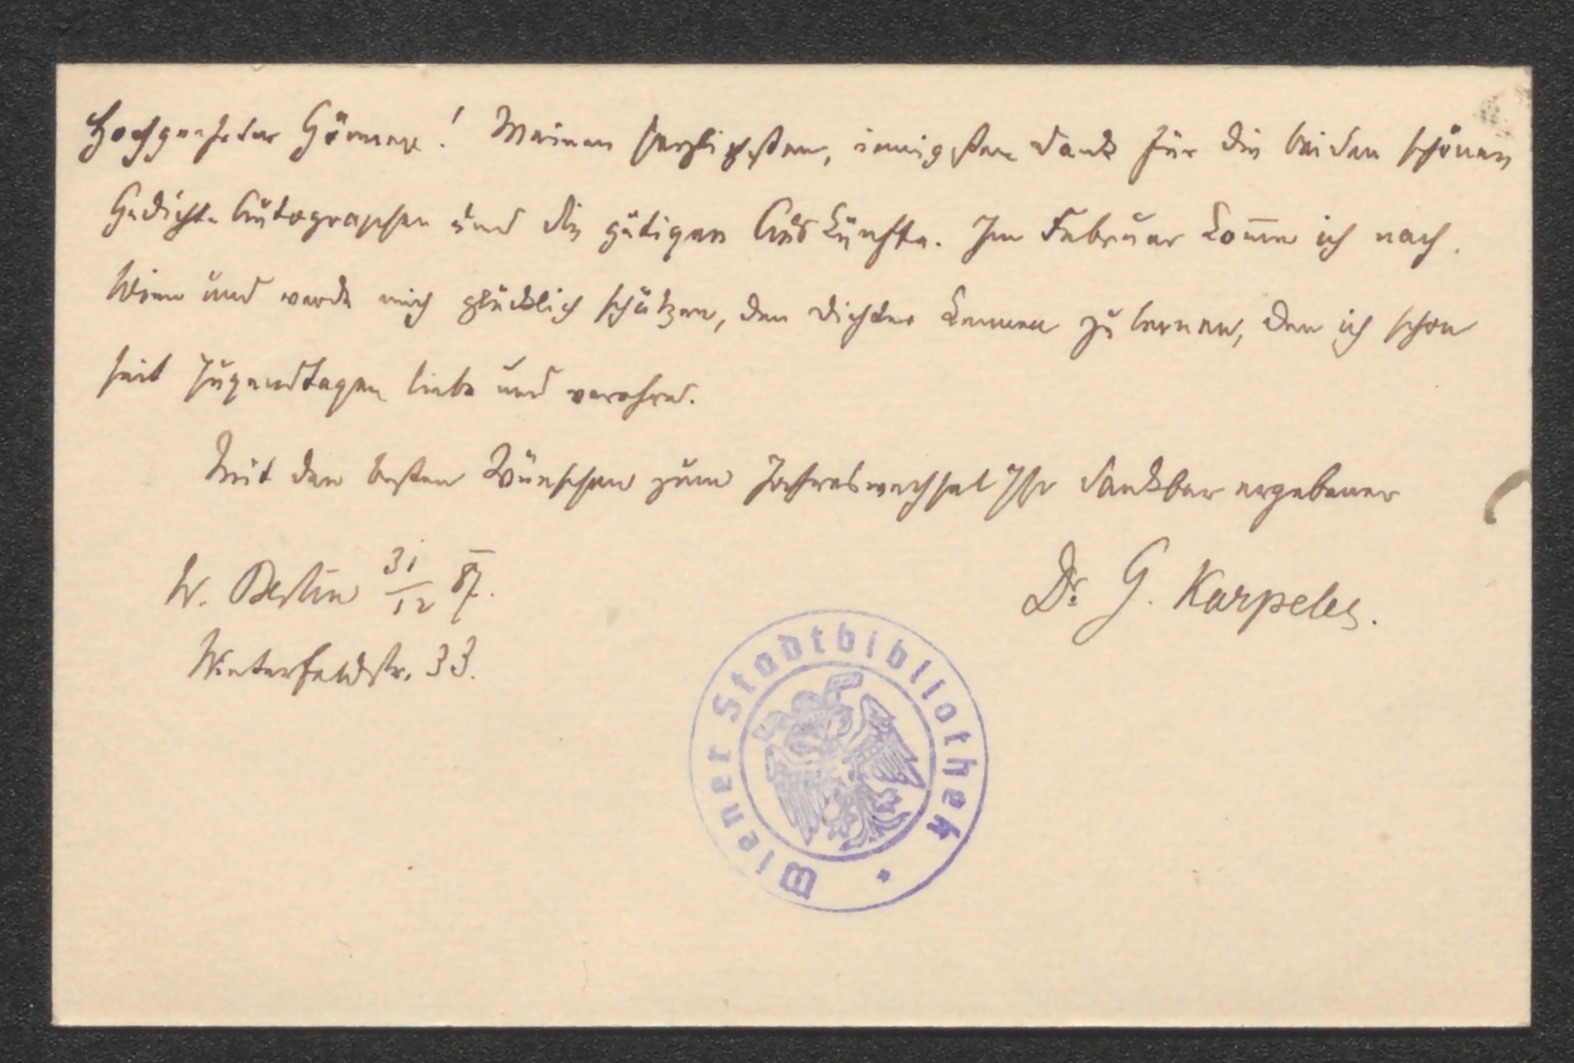 Hochgeehrter Gönner! Meinen herzlichsten, innigsten Dank für die beiden schönen
Gedichte Autographen und die gütigen Auskünfte. Im Februar kom̅e ich nach
Wien und werde mich glücklich schätzen, den Dichter kennen zu lernen, den ich schon
seit Jugendtagen liebe und verehre.
Mit den besten Wünschen zum Jahreswechsel Ihr dankbar ergebener
W. Berlin 31/12 87.
Dr G. Karpeles.
Winterfeldstr. 33.
Wiener Stadtbibliothek